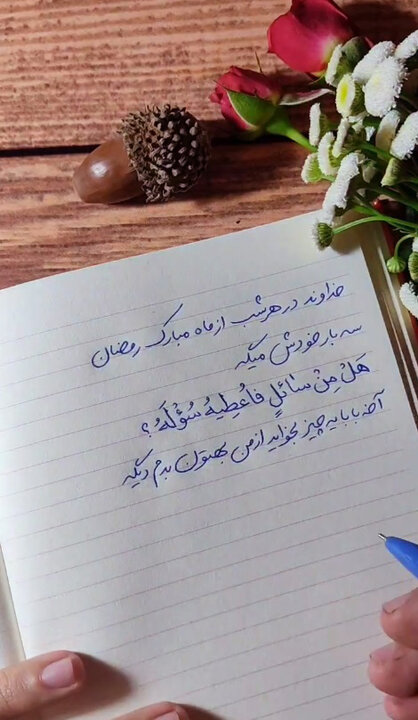 خداوند در هر شب از ماه مبارک رمضان
سه بار خودش میگه
هَلْ مِنْ سٰائِلٍ فَاُعْطِیهُ سُؤْلَهُ؟
آخه بابا یه چیز بخواید از من بهتون بدم دیگه